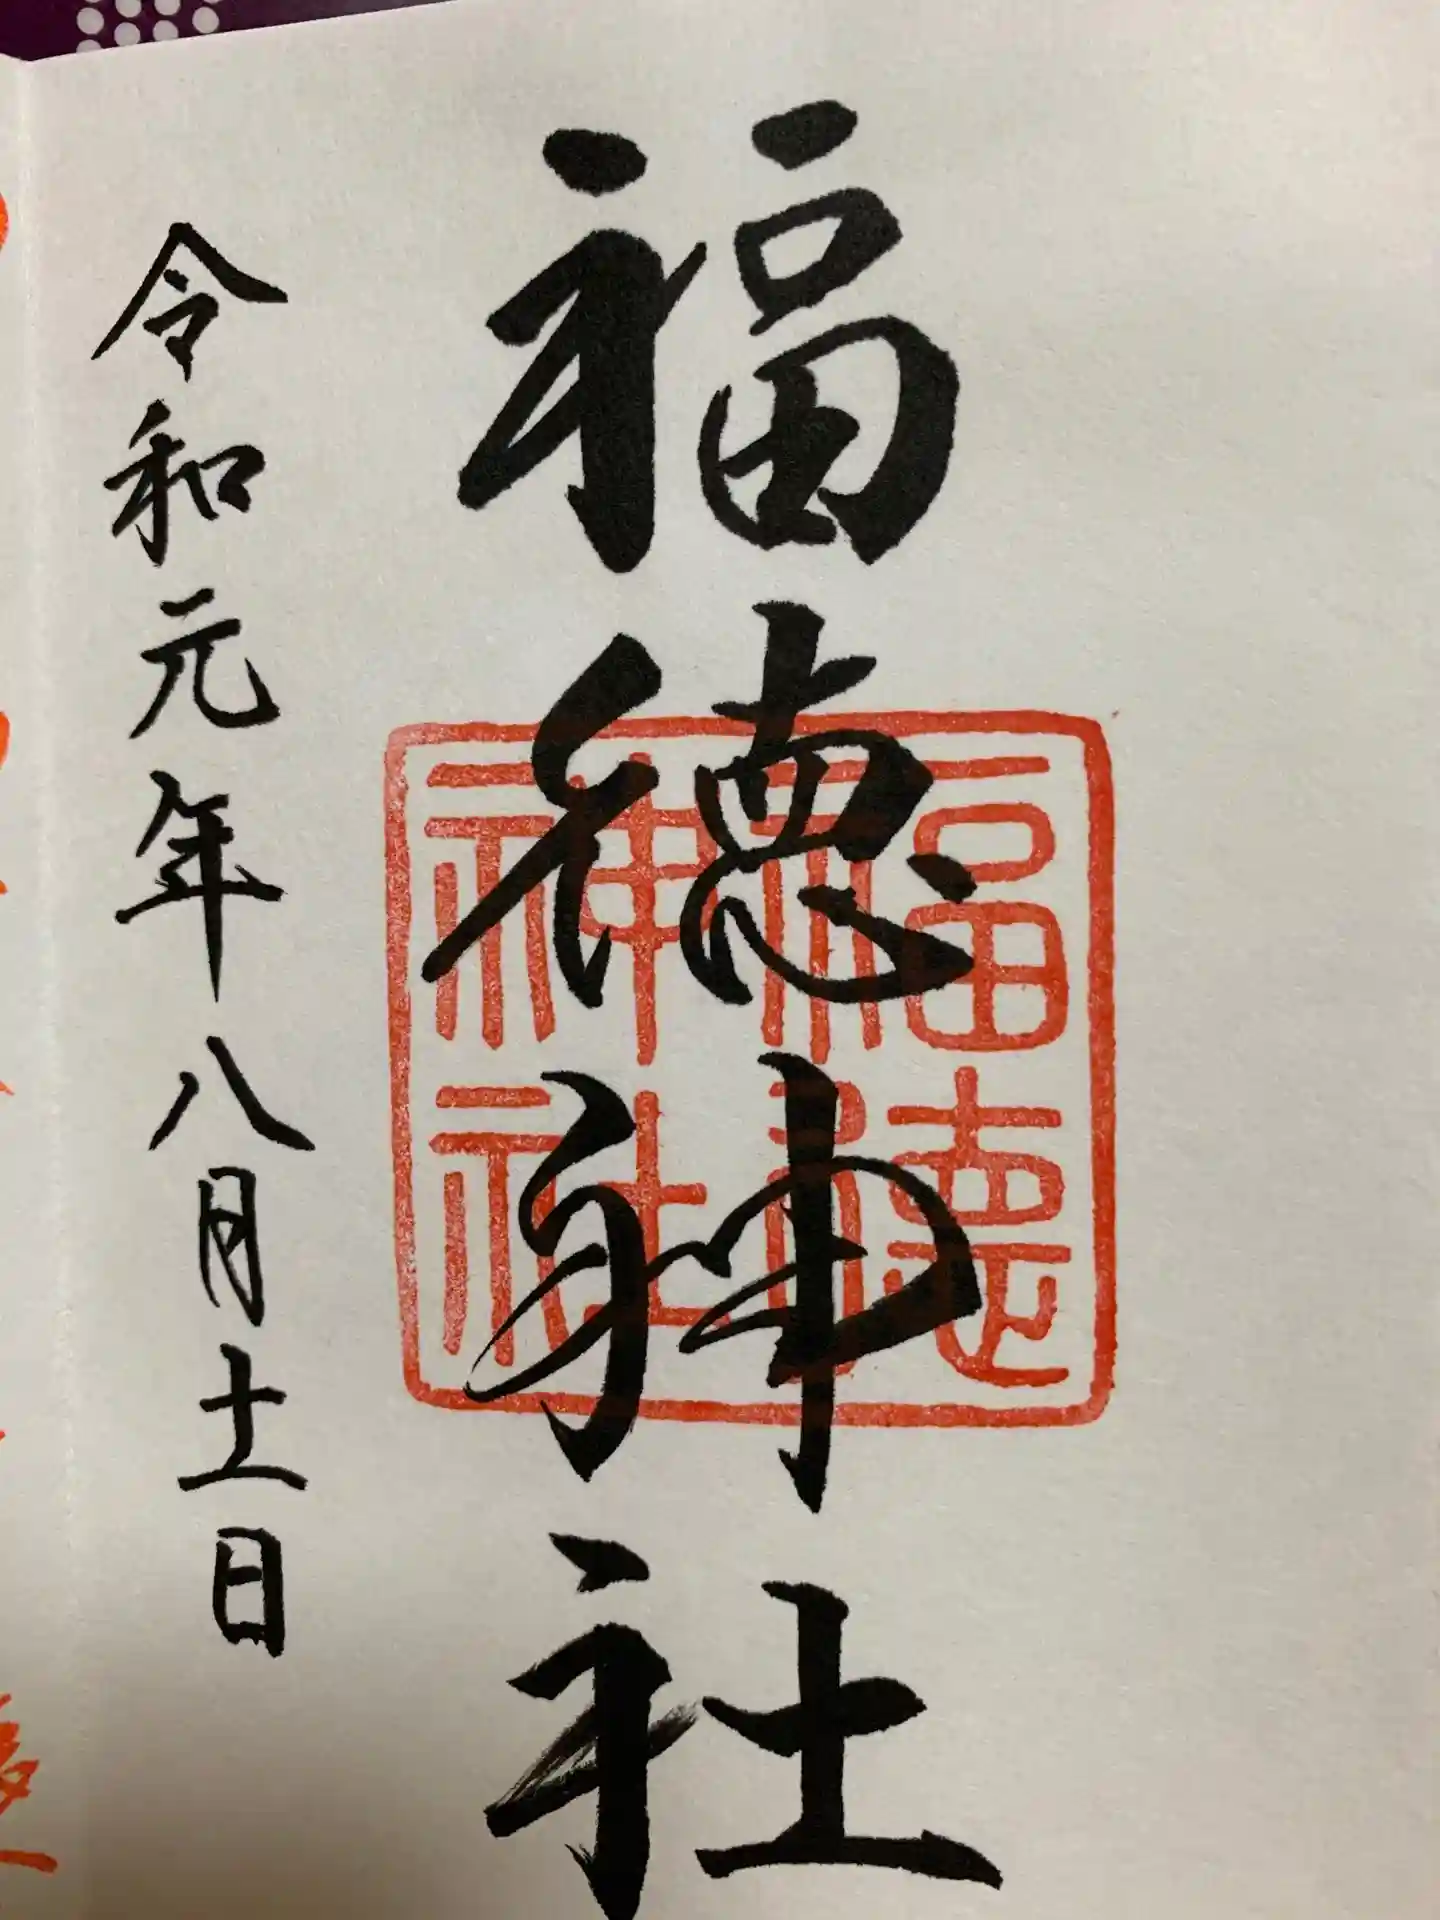 福徳神社
福徳
神社
令和元年八月十一日